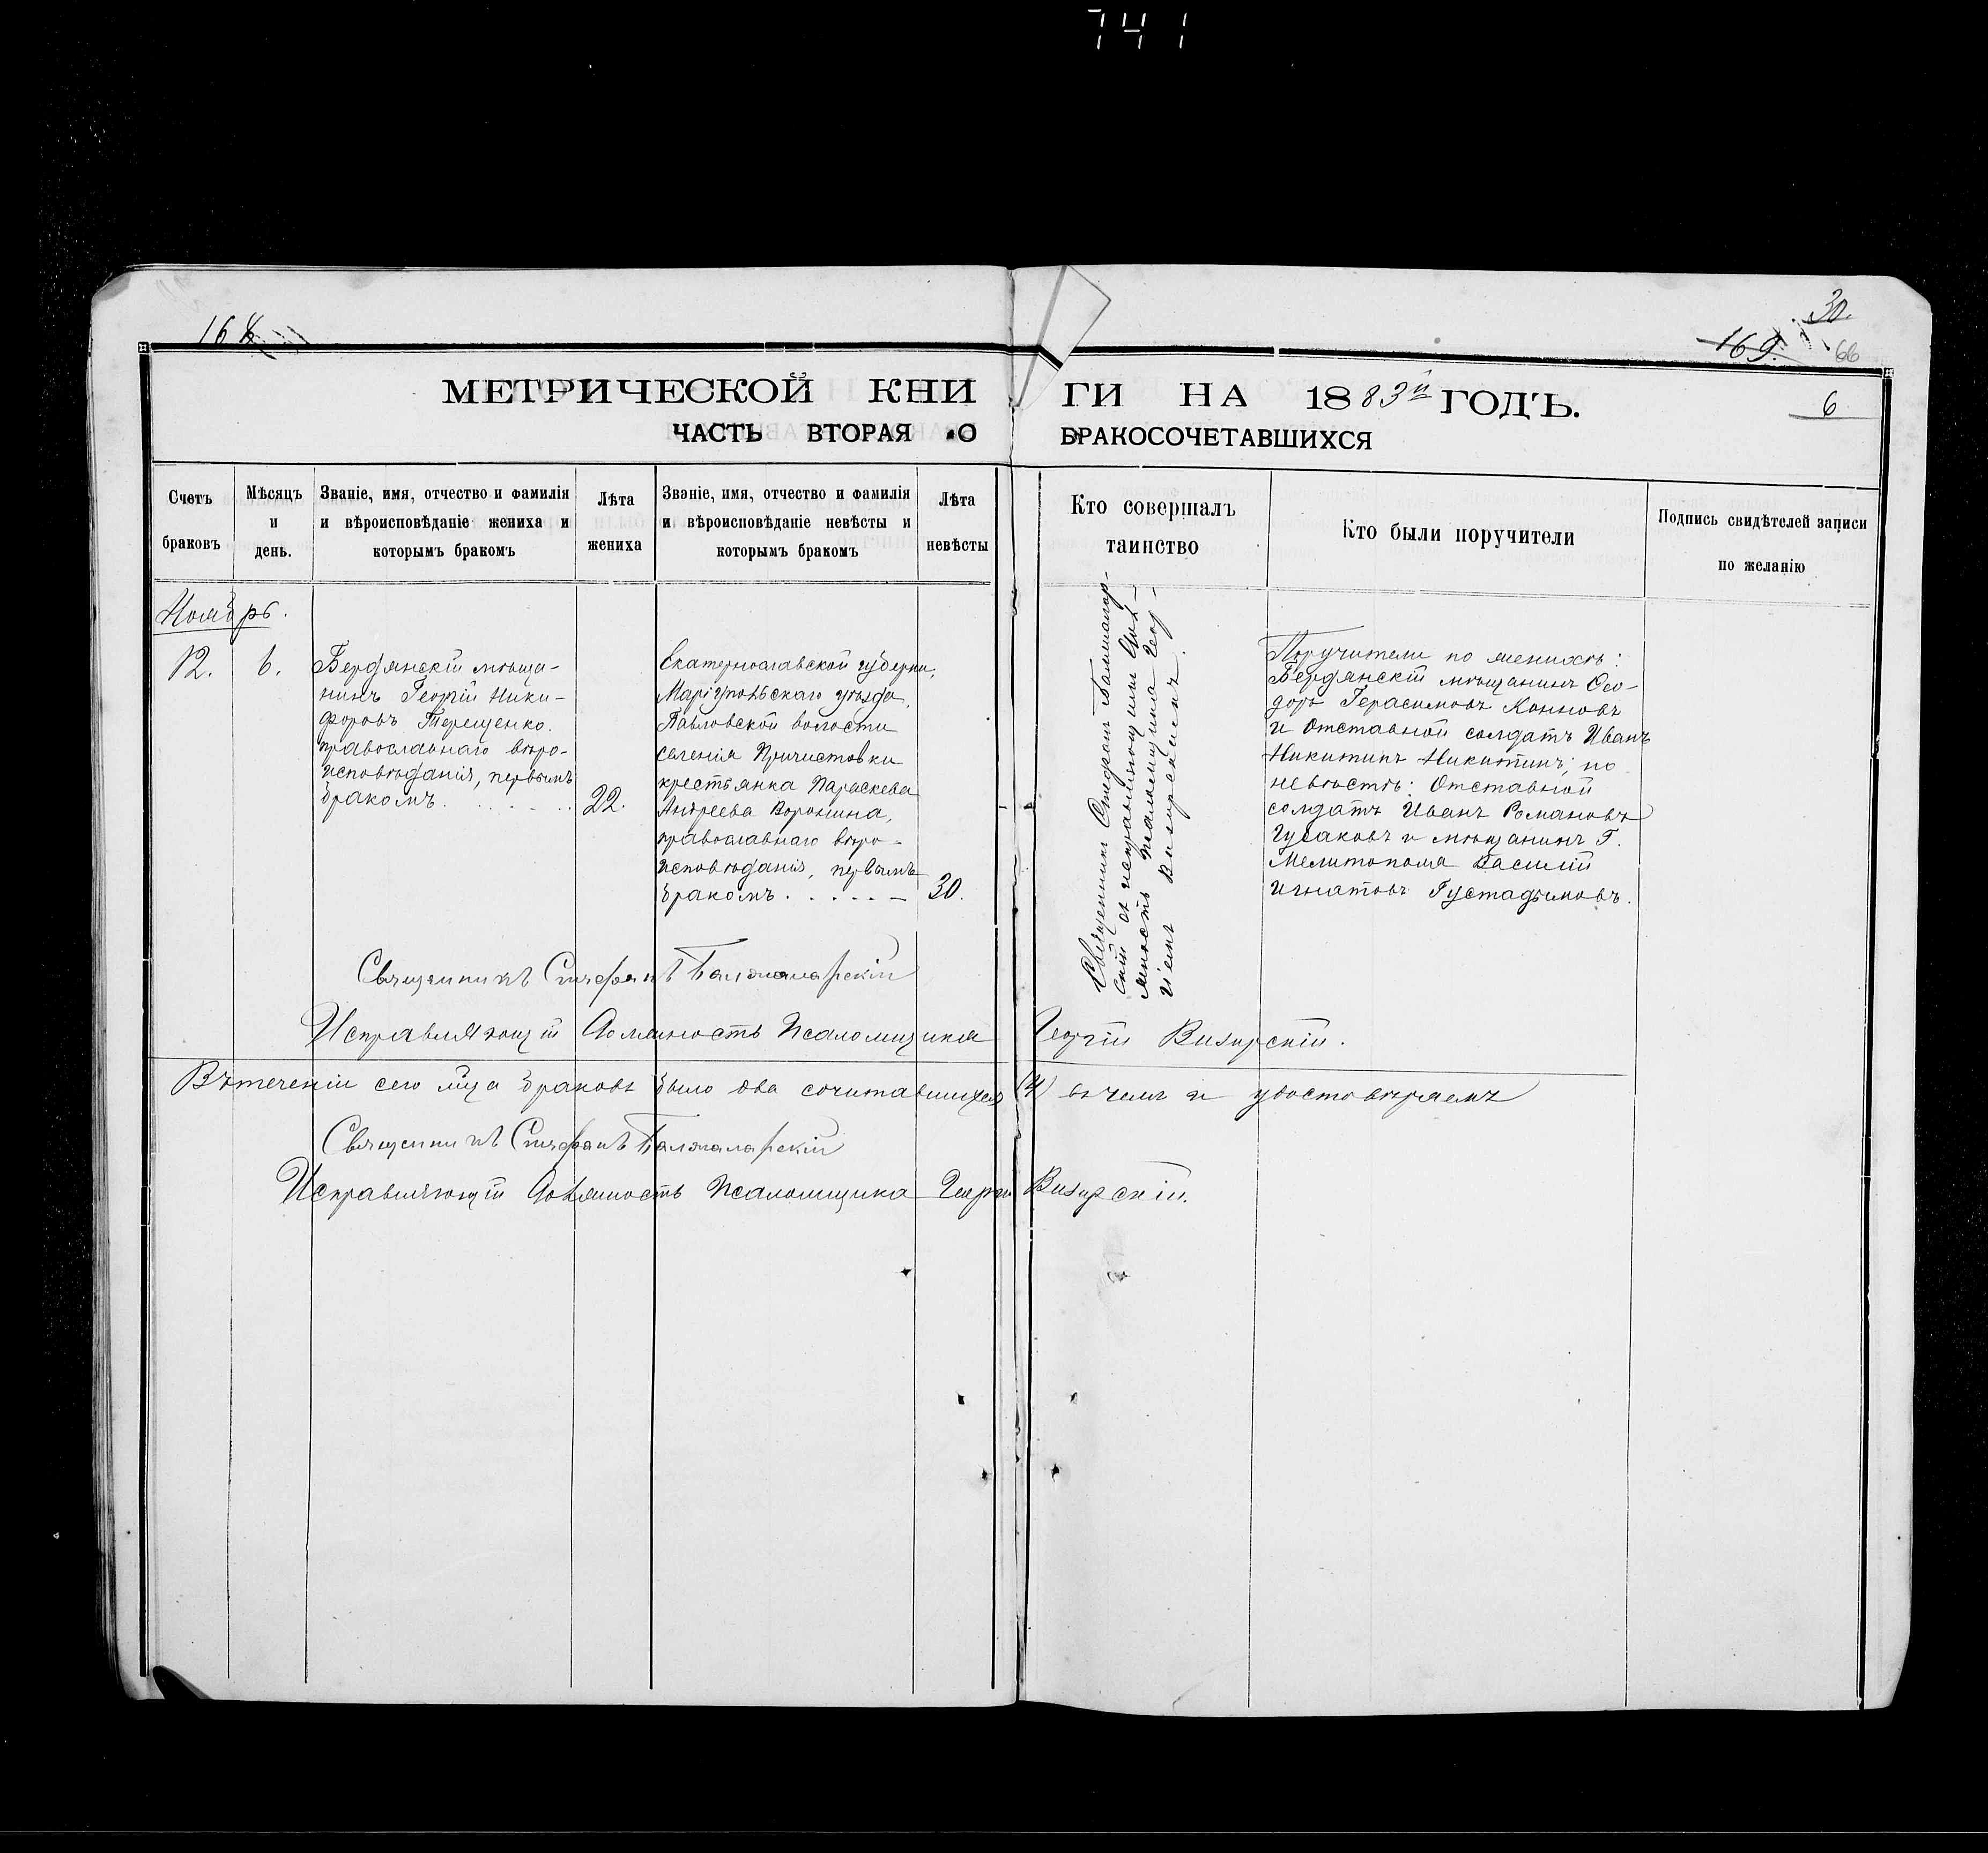 741
168
30.
169.
66
МЕТРИЧЕСКОЙ КНИ
ГИ НА 1883й ГОДЪ.
6
ЧАСТЬ ВТОРАЯ О
БРАКОСОЧЕТАВШИХСЯ
Счетъ
браковъ
Мѣсяцъ
и
день.
Званіе, имя, отчество и фамилія
и вѣроисповѣданіе жениха и
которымъ бракомъ
Лѣта
жениха
Званіе, имя, отчество и фамилія
и вѣроисповѣданіе невѣсты и
которымъ бракомъ
Лѣта
невѣсты
Кто совершалъ
таинство
Кто были поручители
Подпись свидѣтелей записи
по желанію
Ноябрь.
12.
6.
Бердянскій мѣща-
нинъ Георгій Ники-
форовъ Терещенко.
православнаго вѣро-
исповѣданія, первымъ
бракомъ . . . . .
22.
Екатеринославской губерніи,
Маріупольскаго уѣзда,
Павловской волости
селенія Причистовки
крестьянка Параскева
Андреева Воронина,
православнаго вѣро-
исповѣданія, первымъ
бракомъ . . . . . —
30.
Священникъ Стефанъ Балжалар-
скій съ исправляющимъ дол-
жность псаломщика Геор-
гіемъ Визирскимъ.
Поручители по женихѣ:
Бердянскій мѣщанинъ Ѳео-
доръ Герасимовъ Конновъ
и Отставной солдатъ Иванъ
Никитинъ Никитинъ; по
невѣстѣ: Отставной
солдатъ Иванъ Романовъ
Гусаковъ и мѣщанинъ Г.
Мелитополя Василій
Игнатовъ
Священникъ Стефанъ Балжаларскій
Исправляющій должность Псаломщика Георгій Визирскій.
Въ теченіи сего м̃ца браковъ было два сочитавшихся (4) въ чемъ и удостовѣряемъ
Священникъ Стефанъ Балжаларскій
Исправляющій должность Псаломщика Георгій Визирскій.